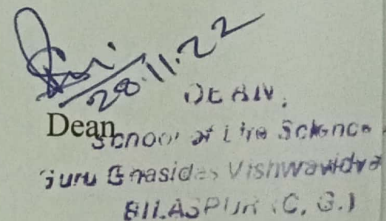 28.11.22
DEAN,
Dean
School of Life Science
Guru Ghasidas Vishwavidya
BILASPUR (C. G.)